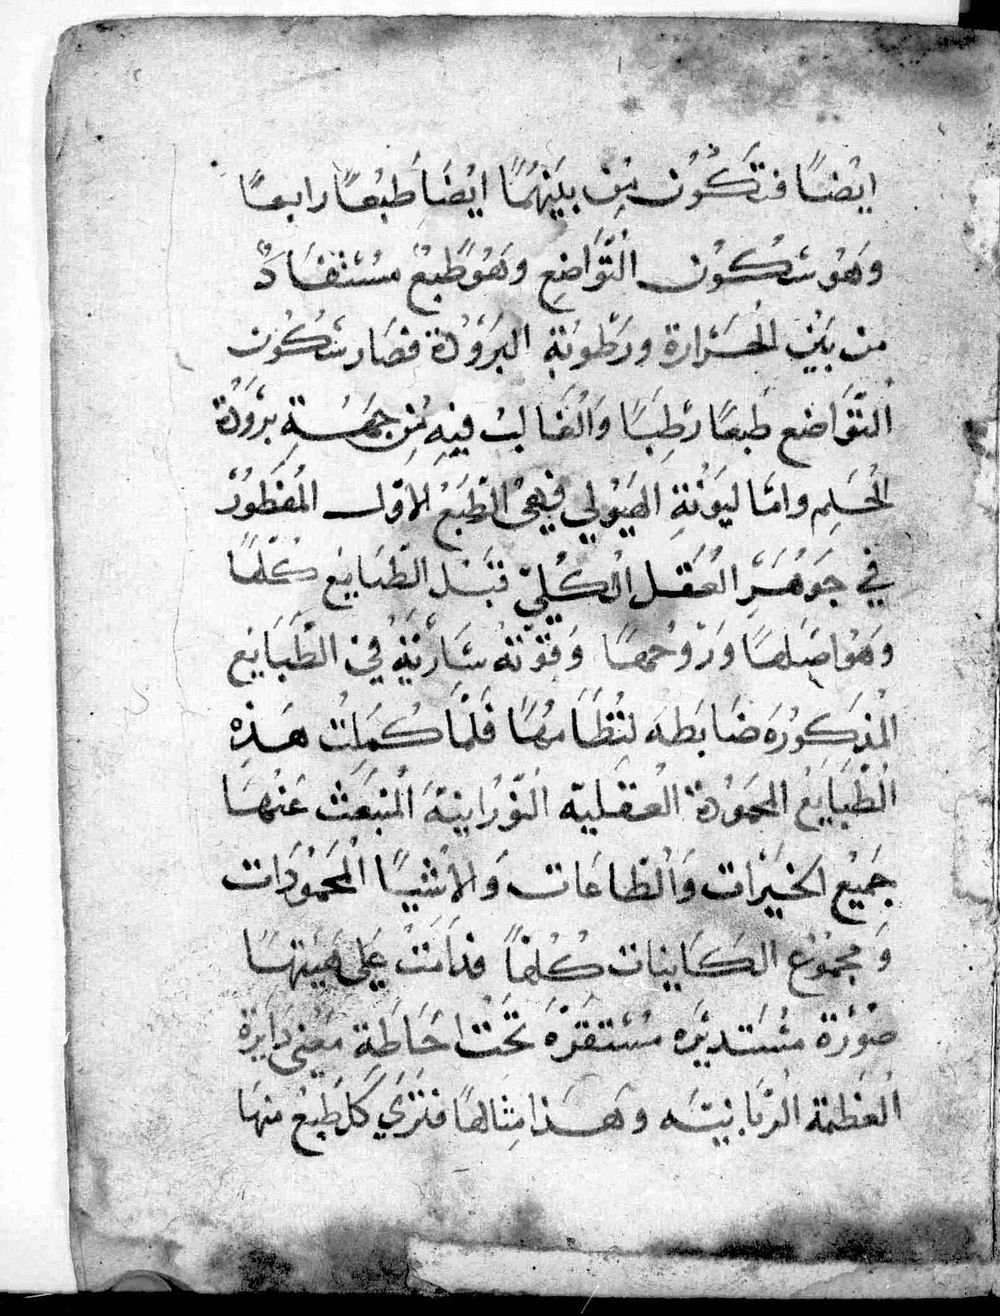 ايضًا فتَكُوْن مِن بينهمَا ايضَا طَبعًا رابعًا
وهَوُ سُكوُن التَّوَاضِع وهَوُ طبعٌ مسُتفادٌ
من بَين الحَرارة ورَطوبَةِ البرَوُدة فصَار سُكوُن
التَّوَاضع طَبعًا رطبَا وَالغَالبُ فيه مِن جهَةِ برَوُدة
الحُلم وامَّا ليوُنَةِ الهَيوُلي فهِيَ الطَبعْ الاوّل المُفطوُرُ
في جوَهَرِ العَقل الكُليّ قبَل الطبَايع كلهَا
وهَوُ اصَلهَا ورَوُحهَا وَقوّتهُ سَارِيَةٌ في الطَبَايِع
المذكوُرَه ضَابطه لنِظَامهَا فَلمَّا كمَلِتُ هَذِهِ
الطَبَايعُ المحَموُدة العقليه النوُرَانيَة المنبَعَث عَنهَا
جَميعُ الخَيرَات وَالطاعَات وَالاشيَا المحَموُدَات
وَمجموُع الكَاينات كُلهَا فدَامَتْ عَلي هَيئتهَا
صَوُرة مسُتَديرَه مسُتقرَة تحَت احَاطَةِ معَني دَايرة
العَظمة الرَّبانيَه وهَذا مثالهَا فتَرَي كل طَبعْ منهَا